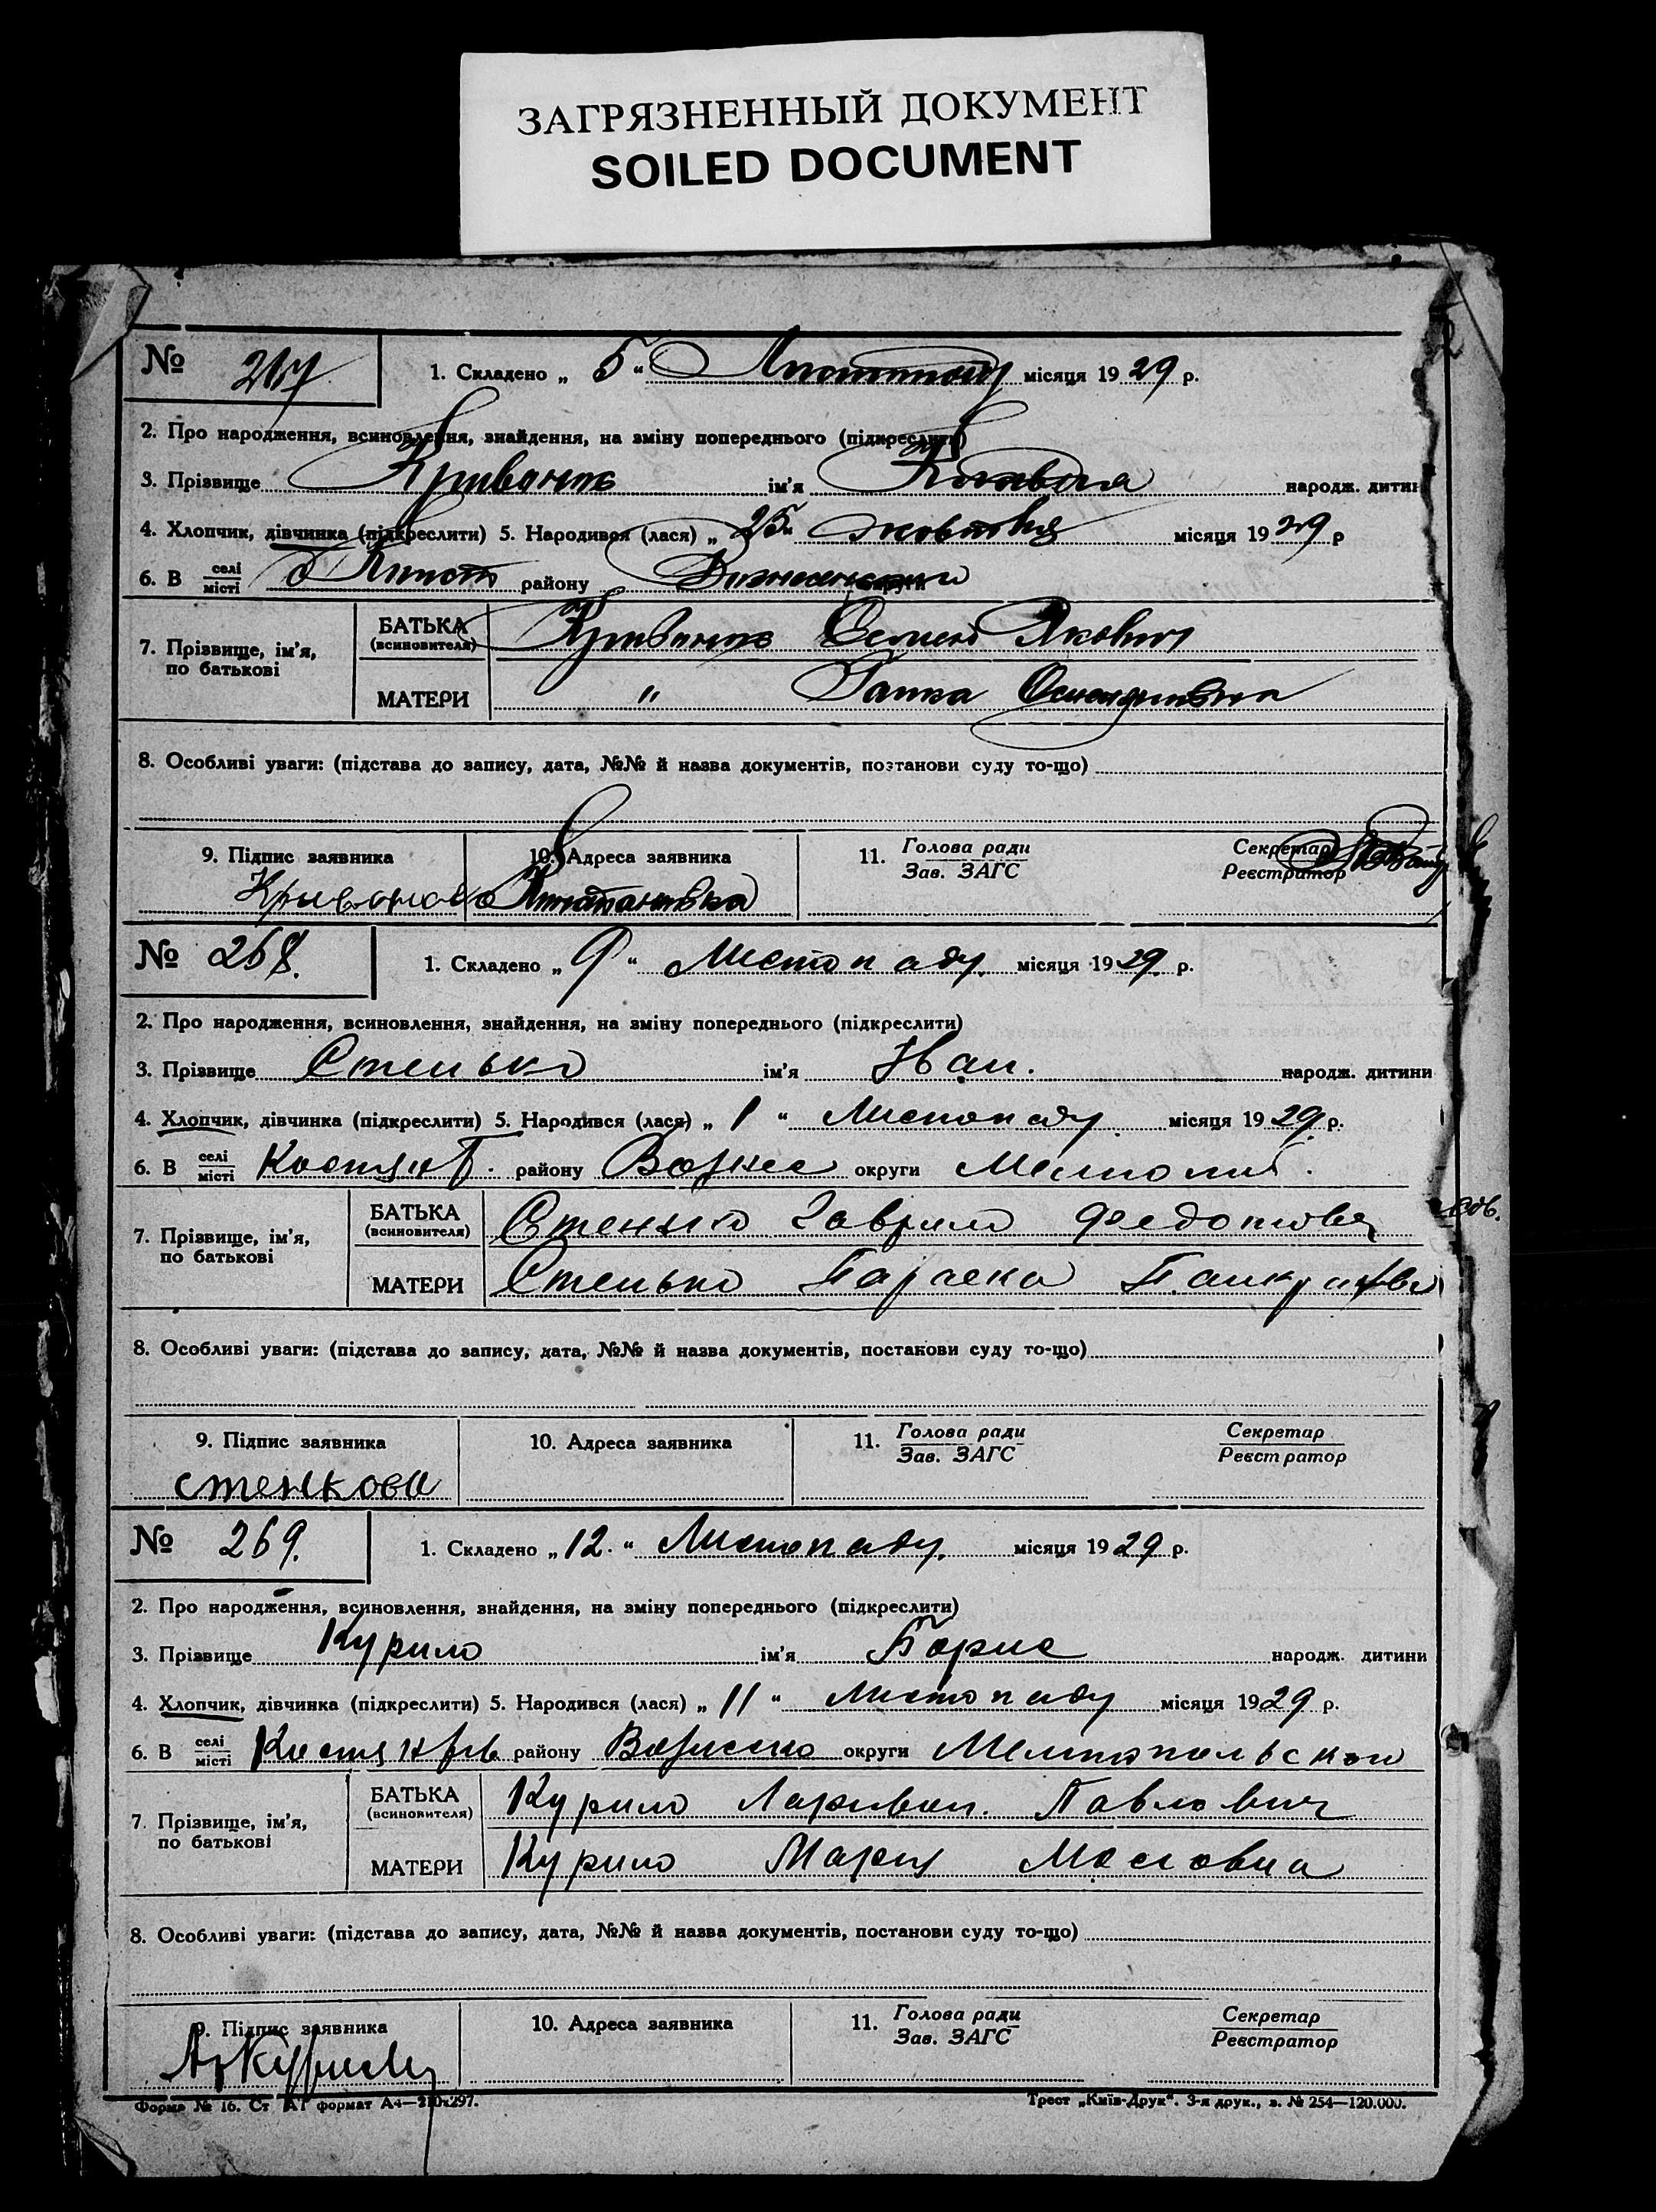 ЗАГРЯЗНЕННЫЙ ДОКУМЕНТ
SOILED DOCUMENT
№ 267 1. Складено „ 5 “ Листопаду місяця 1929 р.
2. Про народження, всиновлення, знайдення, на зміну попереднього (підкреслити)
3. Прізвище ім'я народж. дитин
4. Хлопчик, дівчинка (підкреслити) 5. Народився (лася) „ 25 “ жовтня місяця 1929 р
6. В селі місті району округи
7. Прізвище, ім'я, по батькові
БАТЬКА (всиновителя) Семен Якович
МАТЕРИ " Ганна
8. Особливі уваги: (підстава до запису, дата, №№ й назва документів, поэтанови суду то-що)
9. Підпис заявника 10. Адреса заявника 11. Голова ради Зав. ЗАГС Секретар Реєстратор
№ 268. 1. Складено „ 9 “ Листопаду місяця 1929. р.
2. Про народження, всиновлення, знайдення, на зміну попереднього (підкреслити)
3. Прізвище Стенько ім'я Иван. народж. дитини
4. Хлопчик, дівчинка (підкреслити) 5. Народився (лася) „ 1 “ Листопаду місяця 1929. р.
6. В селі місті району Вознес округи Мелитопил.
7. Прізвище, ім'я, по батькові
БАТЬКА (всиновителя) Стенько Гаврило Федотов
МАТЕРИ Стенько Параска
8. Особливі уваги: (підстава до запису, дата, №№ й назва документів, постанови суду то-що)
9. Підпис заявника 10. Адреса заявника 11. Голова ради Зав. ЗАГС Секретар Реєстратор
стенкова
№ 269. 1. Складено „ 12. “ Листопаду. місяця 1929 р.
2. Про народження, всиновлення, знайдення, на зміну попереднього (підкреслити)
3. Прізвище Курило ім'я Борис народж. дитини
4. Хлопчик, дівчинка (підкреслити) 5. Народився (лася) „ 11 “ Листопаду місяця 1929 р.
6. В селі місті району округи Мелитопольскои
7. Прізвище, ім'я, по батькові
БАТЬКА (всиновителя) Курило Ларивон. Павлович
МАТЕРИ Курило Мария
8. Особливі уваги: (підстава до запису, дата, №№ й назва документів, постанови суду то-що)
9. Підпис заявника 10. Адреса заявника 11. Голова ради Зав. ЗАГС Секретар Реєстратор
Форма № 16. Ст А1 формат А4—210×297. Трест „Київ-Друк“. 3-я друк., з. № 254—120.000.